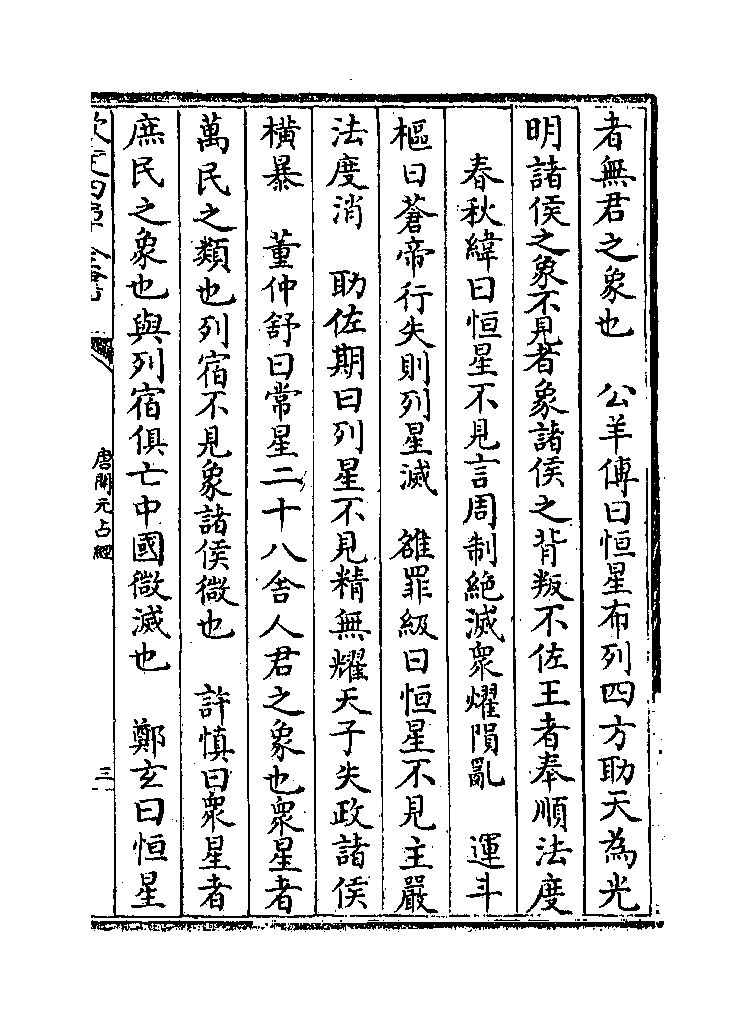 者無君之象也　公羊傳曰恒星布列四方助天為光
明諸侯之象不見者象諸侯之背叛不佐王者奉順法度
春秋緯曰恒星不見言周制絶滅衆燿隕亂　運斗
樞曰蒼帝行失則列星滅　雒罪級曰恒星不見主嚴
法度消　助佐期曰列星不見精無耀天子失政諸侯
橫暴　董仲舒曰常星二十八舍人君之象也衆星者
萬民之類也列宿不見象諸侯微也　許慎曰衆星者
庶民之象也與列宿俱亡中國微滅也　鄭玄曰恒星
唐開元占經
三